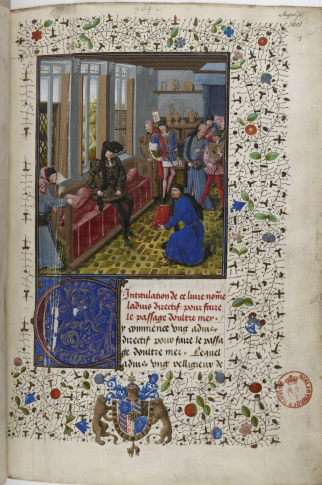 Intitulation de ce liure nõme
laduis directif pour faire
le passage doultre mer.
y commence vng aduis
directif pour faire le passa
ge doultre mer. Lequel
aduis vng religieux de